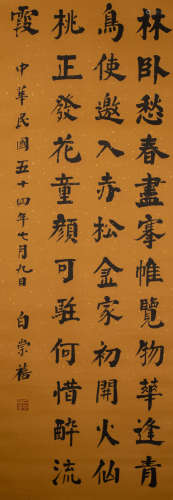 林卧愁春盡搴帷覽物華逢青
鳥使邀入赤松家金初開火仙
桃正發花童顏可駐何惜醉流
霞
中華民國五十四年七月九日
白崇禧